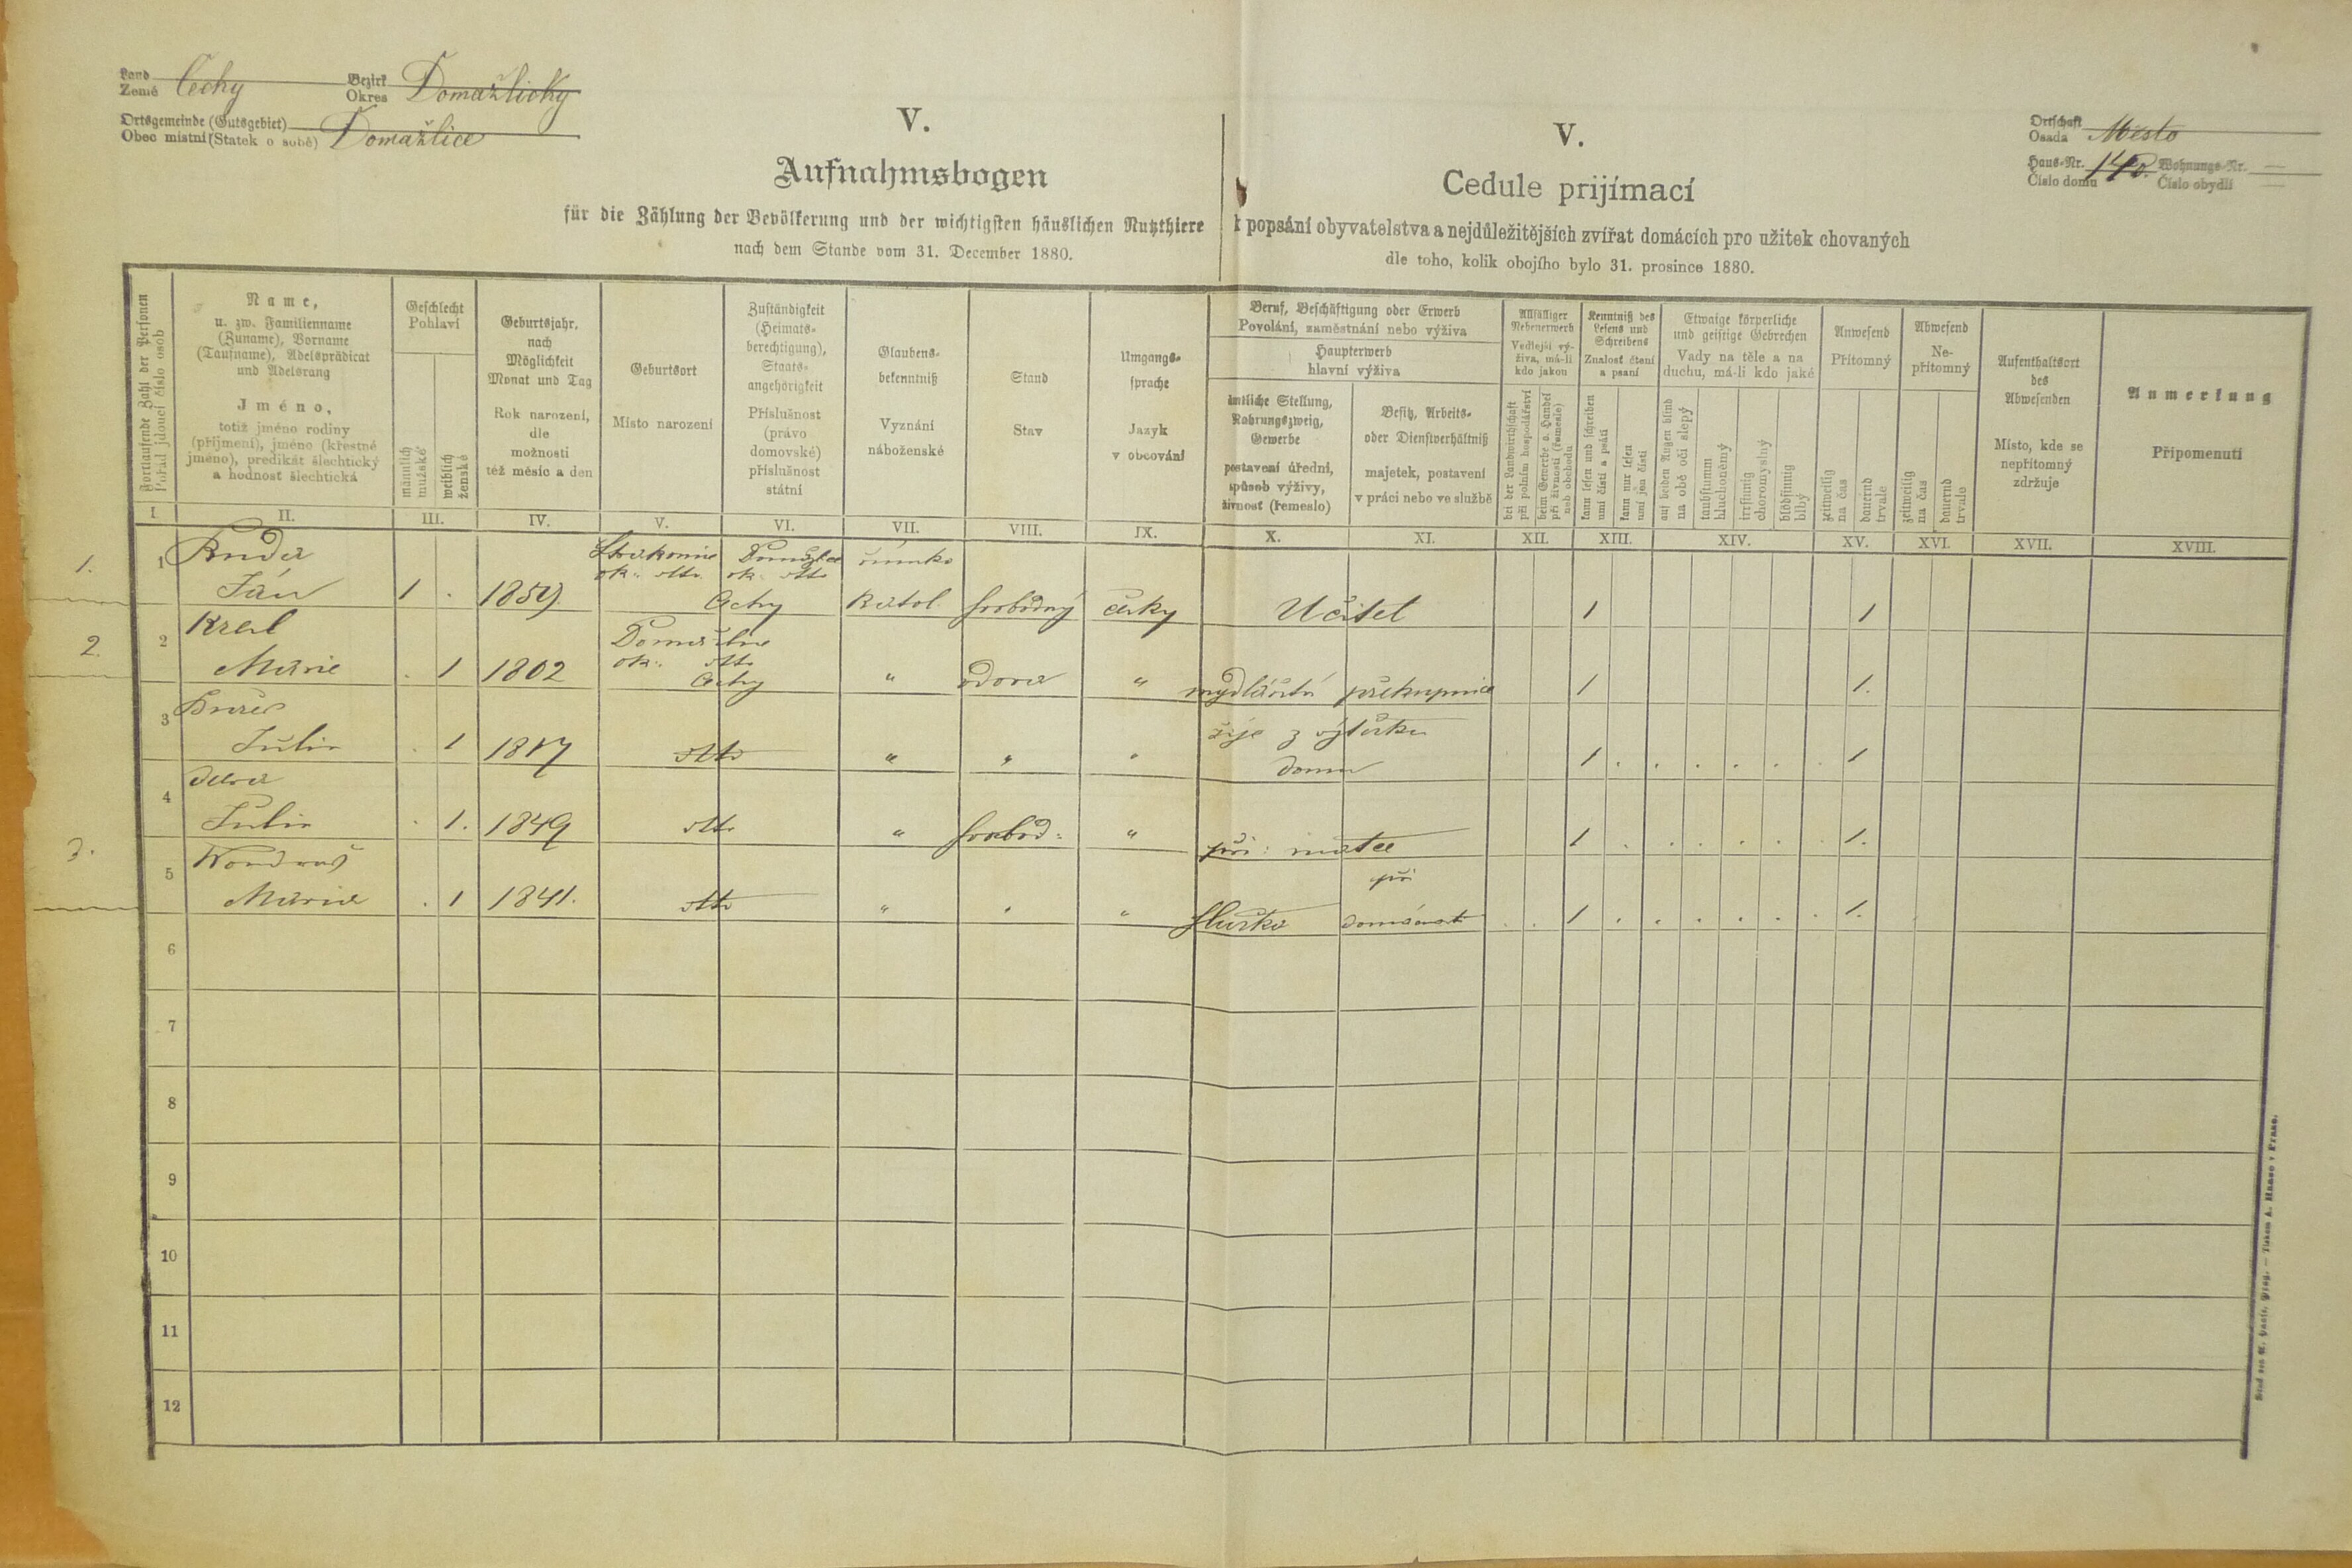 Land
Země Čechy
Bezirk
Okres Domažlický
Ortsgemeinde (Gutsgebiet)
Obec místní (Statek o sobě) Domažlice
V.
Aufnahmsbogen
für die Zählung der Bevölkerung und der wichtigsten häuslichen Nutzthiere
nach dem Stande vom 31. December 1880.
V.
Cedule prijímací
k popsání obyvatelstva a nejdůležitějších zvířat domácích pro užitek chovaných
dle toho, kolik obojího bylo 31. prosince 1880.
Ortschaft
Osada Město
Haus-Nr.
Číslo domu
Wohnungs-Nr. —
Číslo obydlí —
Fortlaufende Zahl der Personen
Pořád jdoucí číslo osob
Name,
u. zw. Familienname
(Zuname), Vorname
(Taufname), Adelsprädicat
und Adelsrang
Jméno,
totiž jméno rodiny
(příjmení), jméno (křestné
jméno), predikát šlechtický
a hodnost šlechtická
Geschlecht
Pohlaví
männlich
mužské
weiblich
ženské
Geburtsjahr,
nach
Möglichkeit
Monat und Tag
Rok narození,
dle
možnosti
též měsíc a den
Geburtsort
Místo narození
Zuständigkeit
(Heimats-
berechtigung),
Staats-
angehörigkeit
Příslušnost
(právo
domovské)
příslušnost
státní
Glaubens-
bekenntniß
Vyznání
náboženské
Stand
Stav
Umgangs-
sprache
Jazyk
v obcování
Beruf, Beschäftigung oder Erwerb
Povolání, zaměstnání nebo výživa
Haupterwerb
hlavní výživa
ämtliche Stellung,
Nahrungszweig,
Gewerbe
postavení úřední,
spůsob výživy,
živnost (řemeslo)
Besitz, Arbeits-
oder Dienstverhältniß
majetek, postavení
v práci nebo ve službě
Allfälliger
Nebenerwerb
Vedlejší vý-
živa, má-li
kdo jakou
bei der Landwirthschaft
při polním hospodářství
beim Gewerbe o. Handel
při živnosti (řemesle)
neb obchodu
Kenntniß des
Lesens und
Schreibens
Znalost čtení
a psaní
kann lesen und schreiben
umí čísti a psáti
kann nur lesen
umí jen čísti
Etwaige körperliche
und geistige Gebrechen
Vady na těle a na
duchu, má-li kdo jaké
auf beiden Augen blind
na obě oči slepý
taubstumm
hluchoněmý
irrsinnig
choromyslný
blödsinnig
blbý
Anwesend
Přítomný
zeitweilig
na čas
dauernd
trvale
Abwesend
Ne-
přítomný
zeitweilig
na čas
dauernd
trvale
Aufenthaltsort
des
Abwesenden
Místo, kde se
nepřítomný
zdržuje
Anmerkung
Připomenutí
I II. III. IV. V. VI. VII. VIII. IX. X. XI. XII. XIII. XIV. XV. XVI. XVII. XVIII.
1. 1
Jan 1 . Čechy katol. svobodný česky Učitel 1 1
2. 2 Král
Marie . 1 1802 Čechy " vdova " mydlářství překupnice 1 1.
3
Julie . 1 1817 dtto " " " žije z výtěžku domu 1 . . . . . . 1
4 dcera
Julie . 1. 1849 dtto " svobod: " při matce 1 . . . . . . 1.
3. 5
Marie . 1 1841. dtto " " " služka při domácnosti . . 1 . . . . . . 1. .
6
7
8
9
10
11
12